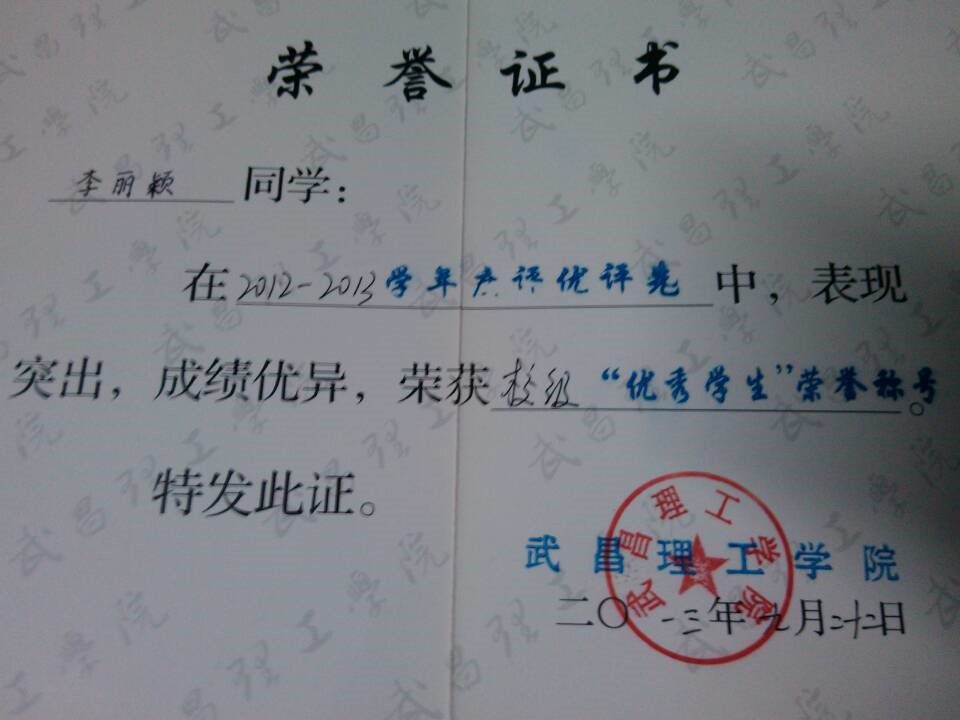 荣誉证书
李丽颖 同学：
在2012-2013学年度评优评先中，表现
突出，成绩优异，荣获校级“优秀学生”荣誉称号。
特发此证。
武昌理工学院
武昌理工学院
二〇一三年九月二十二日